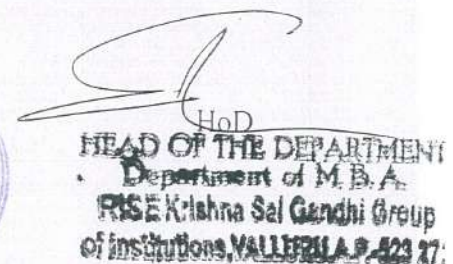 HoD
HEAD OF THE DEPARTMENT
Department of M.B.A.
RISE Krishna Sai Gandhi Group
of Institutions, A.P.-523 27